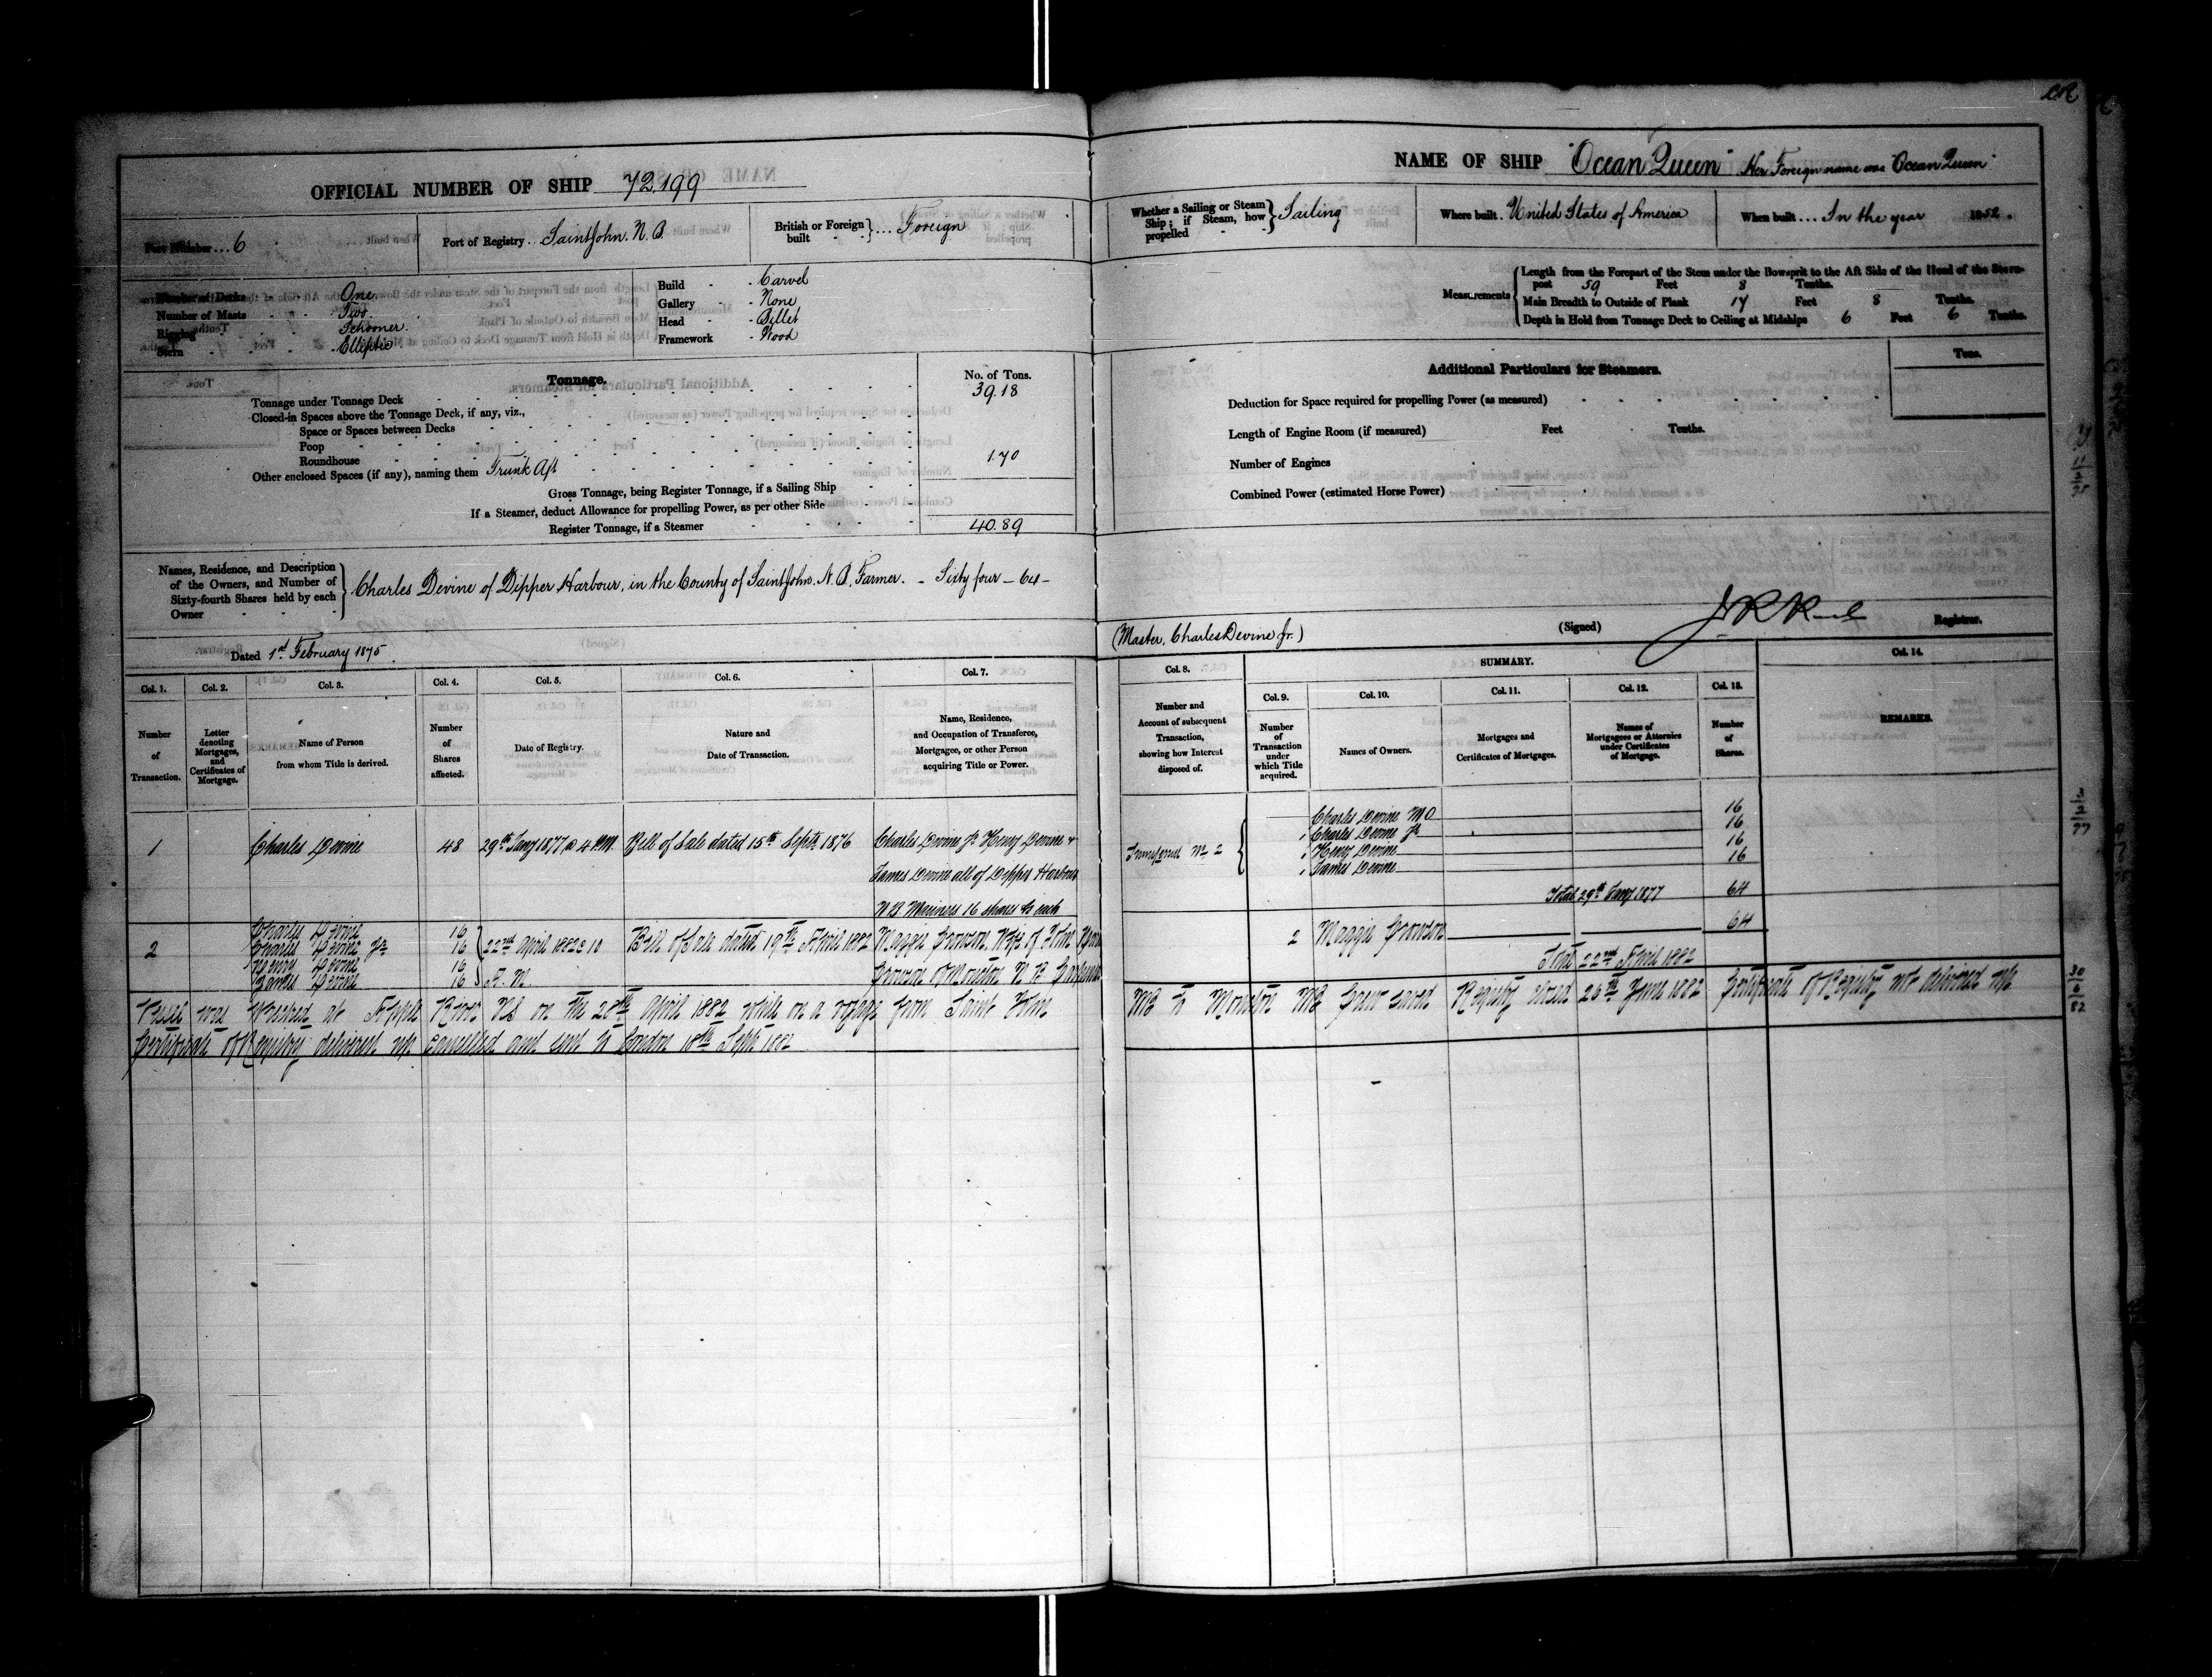 OFFICIAL NUMBER OF SHIP 72,199
Port Number ... 6
Port of Registry .. Saint John. N. B.
British or Foreign built } .... Foreign
Number of Decks One.
Number of Masts Two.
Rigging Schooner.
Stern Elliptic
Build Carvel
Gallery None
Head Billet
Framework Wood
Tonnage.
No. of Tons.
Tonnage under Tonnage Deck 39.18
Closed-in Spaces above the Tonnage Deck, if any, viz.,
Space or Spaces between Decks
Poop
Roundhouse
Other enclosed Spaces (if any), naming them Trunk Aft 1.70
Gross Tonnage, being Register Tonnage, if a Sailing Ship
If a Steamer, deduct Allowance for propelling Power, as per other Side
Register Tonnage, if a Steamer 40.89
Names, Residence, and Description
of the Owners, and Number of
Sixty-fourth Shares held by each
Owner
Charles Devine of Dipper Harbour, in the County of Saint John. N. B. Farmer. – Sixty four – 64 –
Dated 1st. February 1875.
Col. 1. Col. 2. Col. 3. Col. 4. Col. 5. Col. 6. Col. 7.
Number of Transaction.
Letter denoting Mortgages, and Certificates of Mortgage.
Name of Person from whom Title is derived.
Number of Shares affected.
Date of Registry.
Nature and Date of Transaction.
Name, Residence, and Occupation of Transferee, Mortgagee, or other Person acquiring Title or Power.
1 Charles Devine 48 29th Jany 1877 @ 4 P.M. Bill of Sale dated 15th Septr. 1876 Charles Devine Jr Henry Devine +
James Devine all of Dipper Harbour
N B Mariners 16 shares to each
2
Charles Devine 16
Charles Devine Jr 16
Henry Devine 16
James Devine 16
22nd April 1882 @ 10
A. M.
Bill of Sale dated 19th April 1882
Maggie Crowson, Wife of John
Crowson of Moncton N B
Vessel was Wrecked at Apple River NS on the 28th April 1882 while on a voyage from Saint John
Certificate of Registry delivered up cancelled and sent to London 18th Septr 1882
NAME OF SHIP "Ocean Queen" Her Foreign name was "Ocean Queen"
Whether a Sailing or Steam Ship; if Steam, how propelled } Sailing
Where built . United States of America
When built ... In the year 1852.
Measurements
Length from the Forepart of the Stem under the Bowsprit to the Aft Side of the Head of the Stern-
post 59 Feet 8 Tenths.
Main Breadth to Outside of Plank 17 Feet 8 Tenths.
Depth in Hold from Tonnage Deck to Ceiling at Midships 6 Feet 6 Tenths.
Additional Particulars for Steamers.
Tons.
Deduction for Space required for propelling Power (as measured)
Length of Engine Room (if measured) Feet Tenths.
Number of Engines
Combined Power (estimated Horse Power)
(Master, Charles Devine Jr.) (Signed) Registrar.
Col. 8. SUMMARY. Col. 14.
Col. 9. Col. 10. Col. 11. Col. 12. Col. 13.
Number and Account of subsequent Transaction, showing how Interest disposed of.
Number of Transaction under which Title acquired.
Names of Owners.
Mortgages and Certificates of Mortgages.
Names of Mortgagees or Attornies under Certificates of Mortgage.
Number of Shares.
REMARKS.
Charles Devine M O 16
1 Charles Devine Jr 16
1 Henry Devine 16
1 James Devine 16
Total 29th Jany 1877 64
2 Maggie Crowson 64
Total 22nd April 1882
NB to Moncton NB Crew saved Registry closed 26th June 1882 Certificate of Registry not delivered up
30
6
82